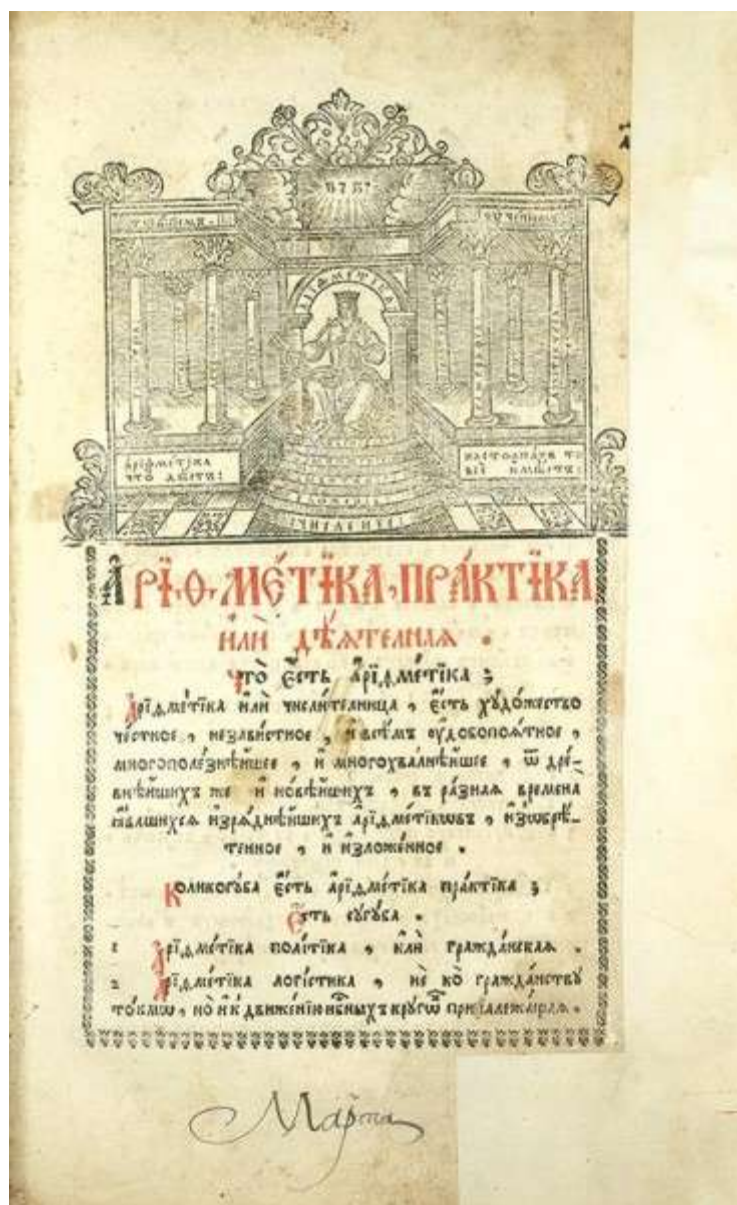 АРІѲМЕТІКА
АРІѲМЕТІКА
ЧТО ДѢЕТЪ:
ЧИСЛЕНІЕ
А҆РІ́Ѳ·МЕ́ТЇКА, ПРА́КТЇКА
и҆лѝ дѣ́ѧтелнаѧ .
Что̀ є҆́сть а҆рїѳме́тїка ;
А҆рїѳме́тїка и҆лѝ числи́телница , є҆́сть хꙋдо́жество
че́стное , незави́стное , и҆ всѣ̑мъ ᲂу҆добопоѧ́тное ,
многополе́знѣйшее , и҆ многохва́лнѣйшее , ѿ дре́-
внѣйшихъ же и҆ новѣ́йшихъ , въ ра̑знаѧ времена̀
ꙗ҆вльшихсѧ и҆зрѧ́днѣйшихъ а҆рїѳме́тїкѡвъ , и҆зѡбрѣ́-
тенное , и҆ и҆зложе́нное .
Коликогꙋба є҆́сть а҆рїѳме́тїка пра́ктїка ;
Є҆́сть сꙋгꙋба .
1 А҆рїѳме́тїка поли́тїка , и҆лѝ гражда́нскаѧ .
2 А҆рїѳме́тїка логі́стика , не ко гражда́нствꙋ
то́кмѡ , но и҆ к движе́нїю нб҃ныхъ крꙋгѡ́въ принадлежа́щаѧ .
Марта